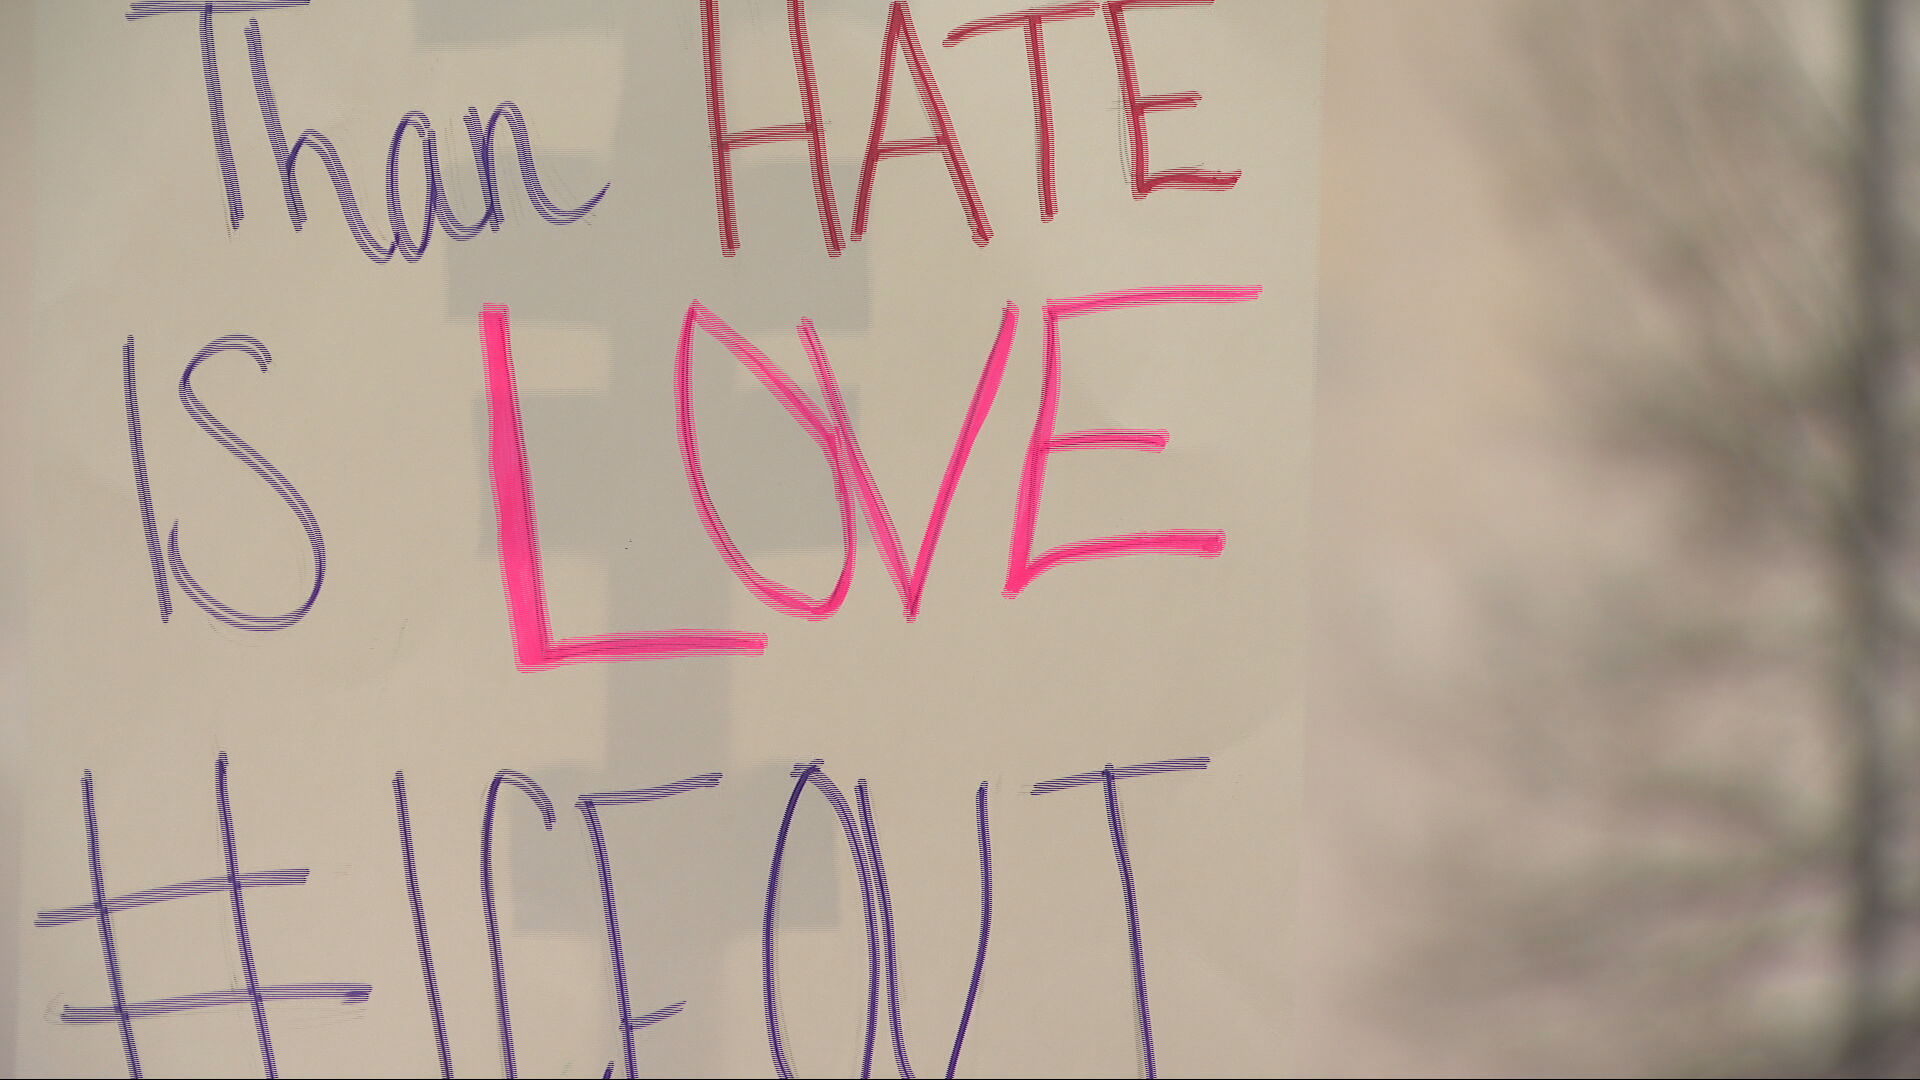 Than HATE
IS LOVE
#ICEOUT